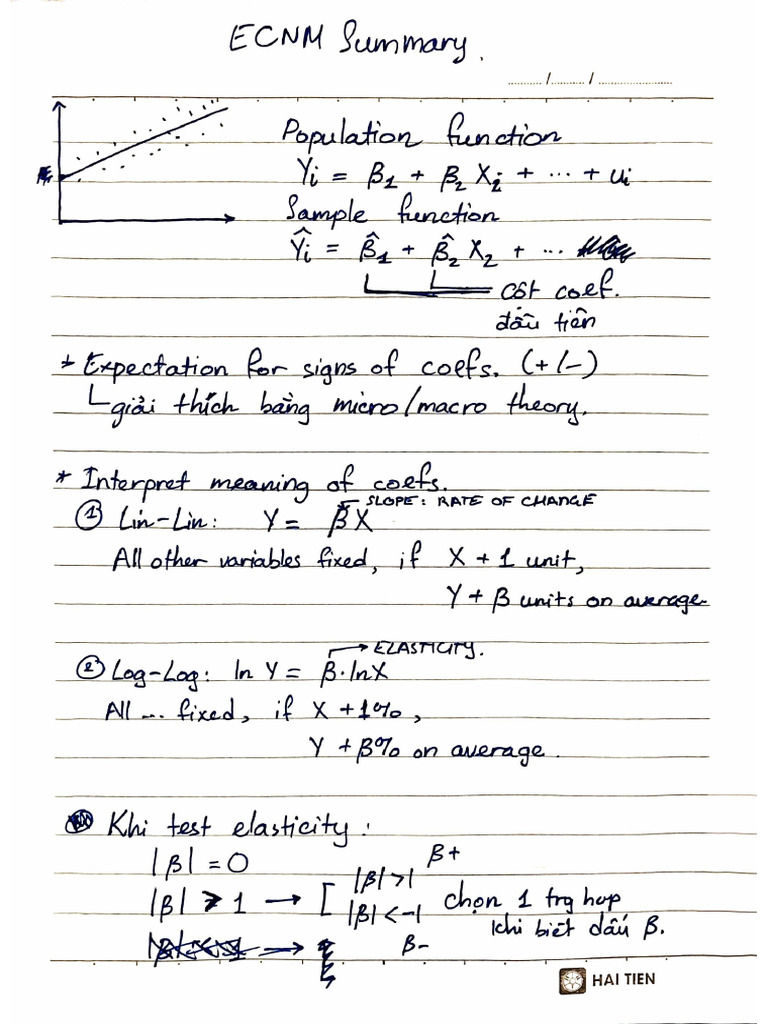 ECNM Summary.
....../....../......
Population function
Yi = β1 + β2 Xi + ... + ui
Sample function
Ŷi = β̂1 + β̂2 X2 + ...
cột coef.
đầu tiên
* Expectation for signs of coefs. (+/-)
giải thích bằng micro/macro theory.
* Interpret meaning of coefs.
SLOPE: RATE OF CHANGE
① Lin-Lin: Y = βX
All other variables fixed, if X + 1 unit,
Y + β units on average
ELASTICITY.
② Log-Log: ln Y = β·lnX
All ... fixed, if X +1%,
Y + β% on average.
Khi test elasticity:
|β| = 0
β+
|β| > 1 → [ |β|>1
|β|<-1 chọn 1 trg hợp
khi biết dấu β.
β-
HAI TIEN